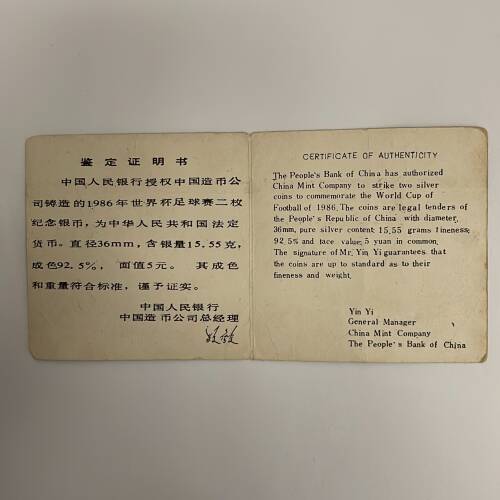 鉴定证明书
中国人民银行授权中国造币公
司铸造的1986年世界杯足球赛二枚
纪念银币，为中华人民共和国法定
货币。直径36mm，含银量15.55克，
成色92.5%，面值5元。 其成色
和重量符合标准，谨予证实。
中国人民银行
中国造币公司总经理
CERTIFICATE OF AUTHENTICITY
The People's Bank of China has authorized
China Mint Company to strike two silver
coins to commemorate the World Cup of
Football of 1986. The coins are legal tenders of
the People's Republic of China with diameter,
36mm, pure silver content: 15.55 grams fineness:
92.5% and face value: 5 yuan in common.
The signature of Mr. Yin Yi guarantees that
the coins are up to standard as to their
fineness and weight.
Yin Yi
General Manager
China Mint Company
The People's Bank of China